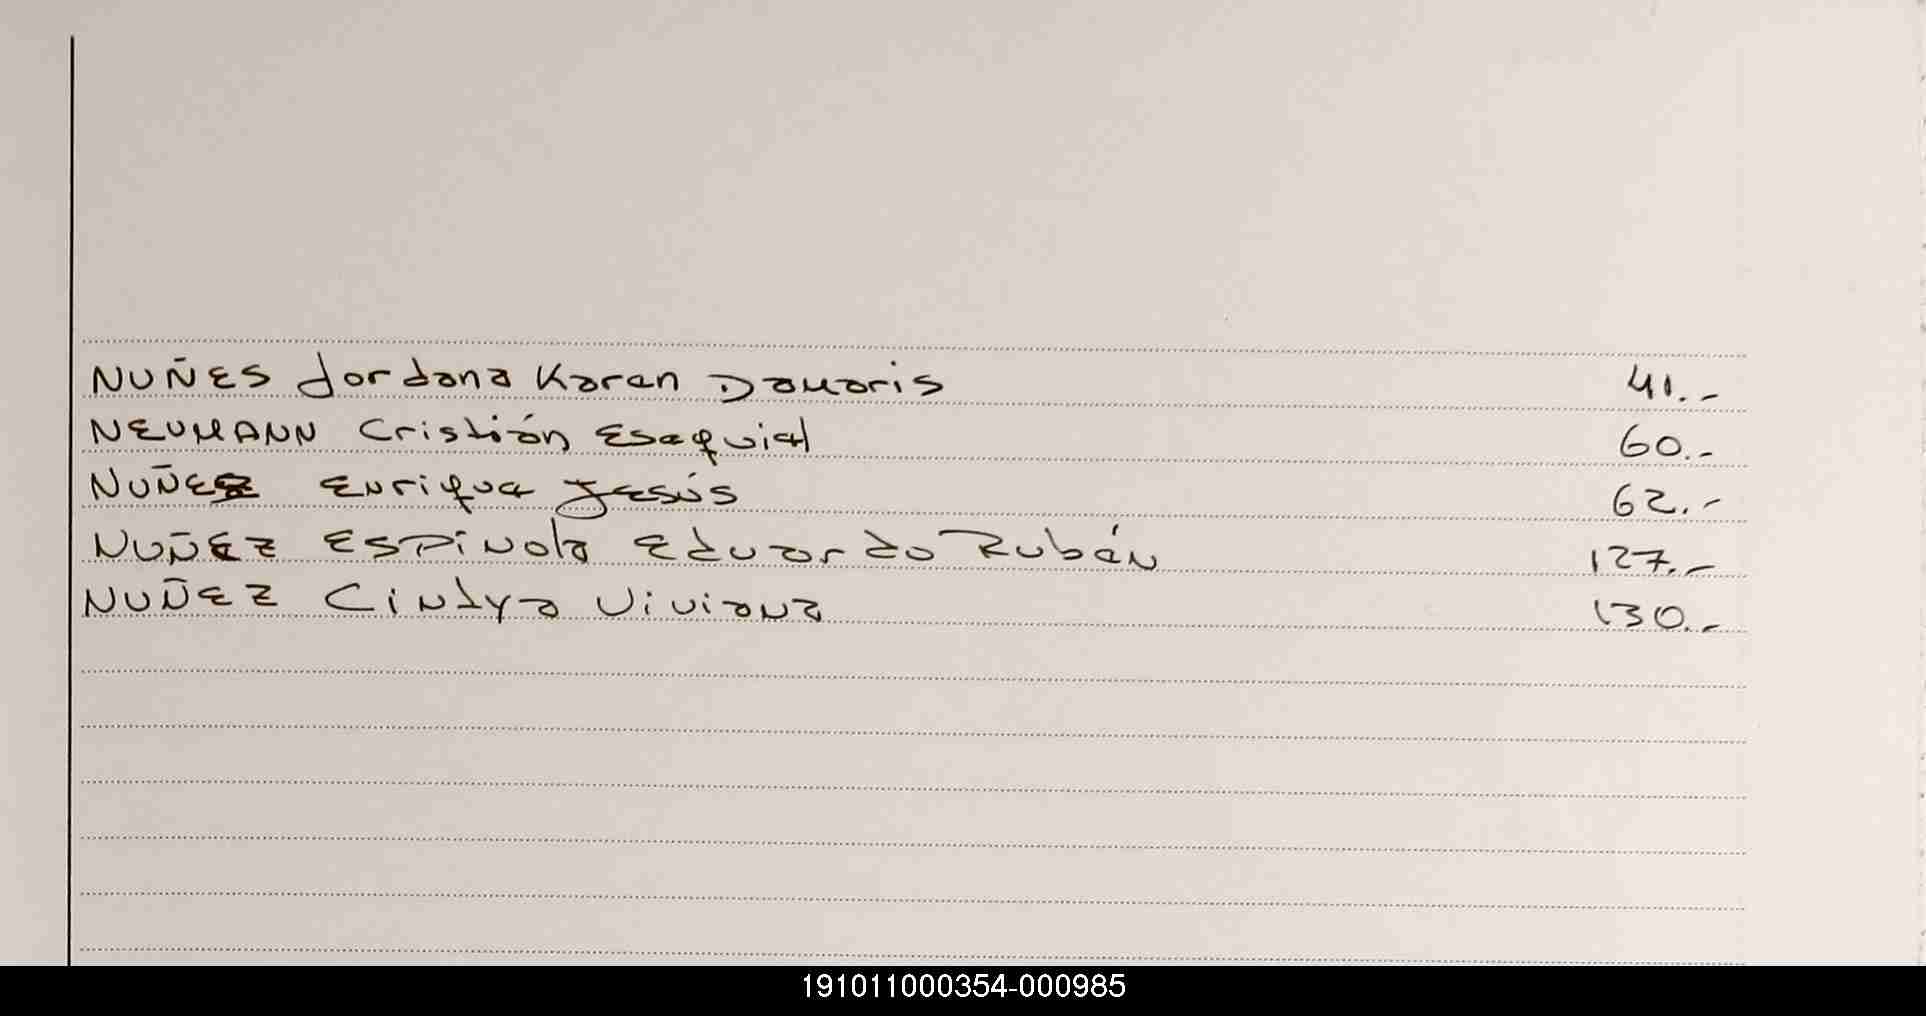 NUÑES Jordana Karen Damaris 41.-
NEUMANN Cristián Esequiel 60.-
NUÑEZ Enrique Jesús 62.-
NUÑEZ ESPINola Eduardo Rubén 127.-
NUÑEZ Cintya Viviana 130.-
191011000354-000985